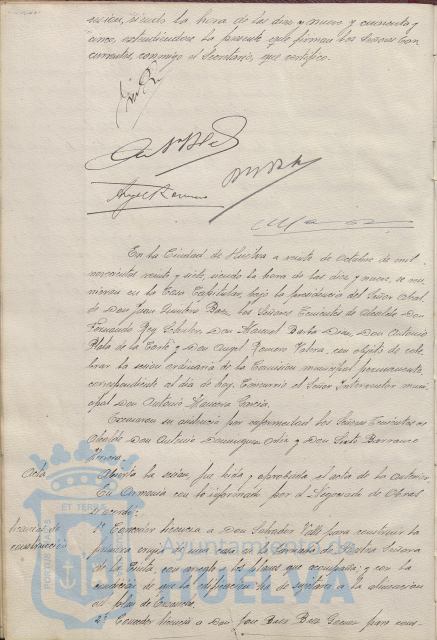 sucesor, siendo la hora de las diez y nueve y cuarenta y
cinco, extendiéndose la presente que firman los Señores Con
currentes, conmigo el Secretario, que certifico.
Angel Romero
En la Ciudad de Huelva a veinte de Octubre de mil
novecientos veinte y siete, siendo la hora de las diez y nueve, se reu-
nieron en la Casa Capitular, bajo la presidencia del Señor Alcal-
de Don Juan Quintero Baez los Señores Tenientes de Alcalde Don
Fernando Rey, Don Manuel Barba Diaz, Don Antonio
Plata de la Corte y Don Angel Romero Valera, con objeto de cele-
brar la sesión ordinaria de la Comisión municipal permanente,
correspondiente al día de hoy. Concurrió el Señor Interventor muni-
cipal Don Antonio García.
Excusaron su asistencia por enfermedad los Señores Tenientes de
Alcalde Don Antonio Dominguez Ortiz y Don Sixto Barranco
Acta
Abierta la sesión, fue leída y aprobada el acta de la anterior.
En Armonía con lo informado por el Negociado de Obras
acuerda:
Licencias de
construcción
1º Conceder licencia a Don Salvador Valle para construir la
primera crujía de una casa en la Barriada de Nuestra Señora
de la Cinta, con arreglo a los planos que acompaña; y con la
condición de que la edificación ha de sujetarse a la alineación
del plan de Ensanche.
2º Conceder licencia a Don José Baez Baez para cons-
PORTUS MARIS ET TERRAE
Ayuntamiento de
HUELVA